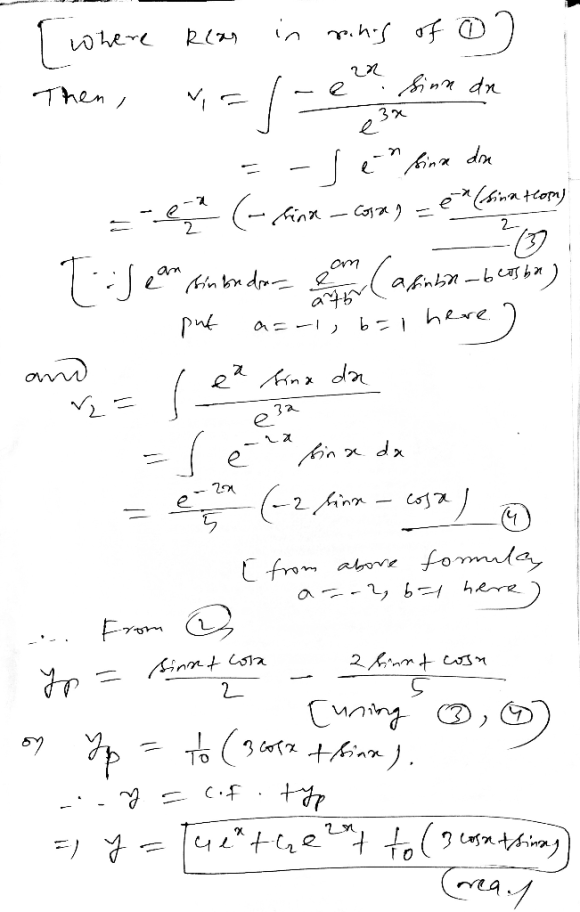 [where R(x) in r.h.s of ①]
Then, v₁ = ∫ -e^{2x}. sinx dx / e^{3x}
= - ∫ e^{-x} sinx dx
= -e^{-x}/2 (-sinx - cosx) = e^{-x}(sinx+cosx)/2 ——③
[∵ ∫ e^{ax} sinbx dx = e^{ax}/(a²+b²) (a sinbx - b cosbx)
put a = -1, b = 1 here]
and
v₂ = ∫ e^x sinx dx / e^{3x}
= ∫ e^{-2x} sin x dx
= e^{-2x}/5 (-2 sinx - cosx) ——④
[from above formula,
a = -2, b=1 here]
∴ From ②,
yp = (sinx + cosx)/2 - (2 sinx + cosx)/5
[using ③, ④]
or yp = 1/10 (3cosx + sinx).
∴ y = C.F. + yp
⇒ y = c₁e^x + c₂e^{2x} + 1/10 (3cosx + sinx)